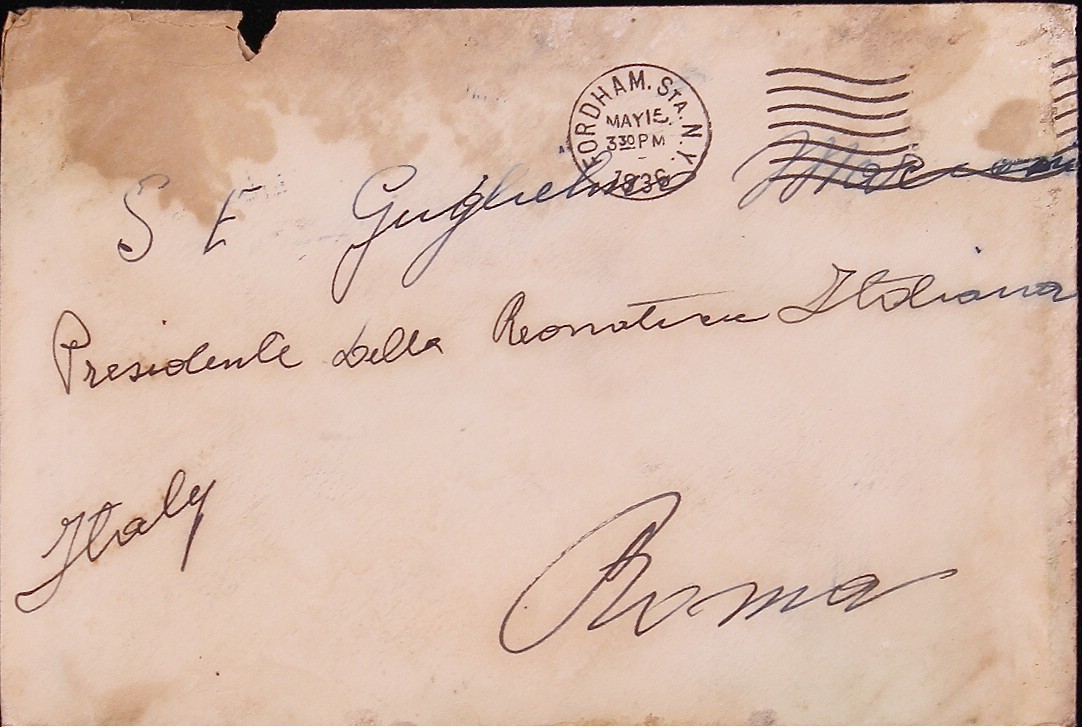 FORDHAM. STA. N.Y.
MAY 15.
3 30 PM
1936
S E Guglielmo Marconi
Presidente della Italiana
Italy
Roma